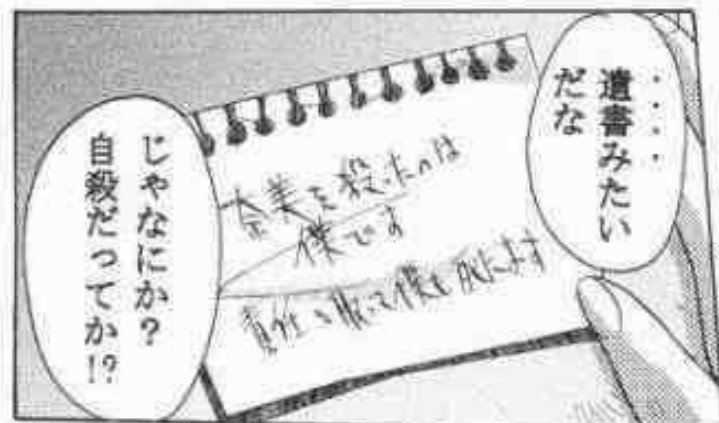 ・・・・
遺書みたい
だな
奈美を殺したのは
僕です
責任を取って僕も死にます
じゃなにか？
自殺だってか!?